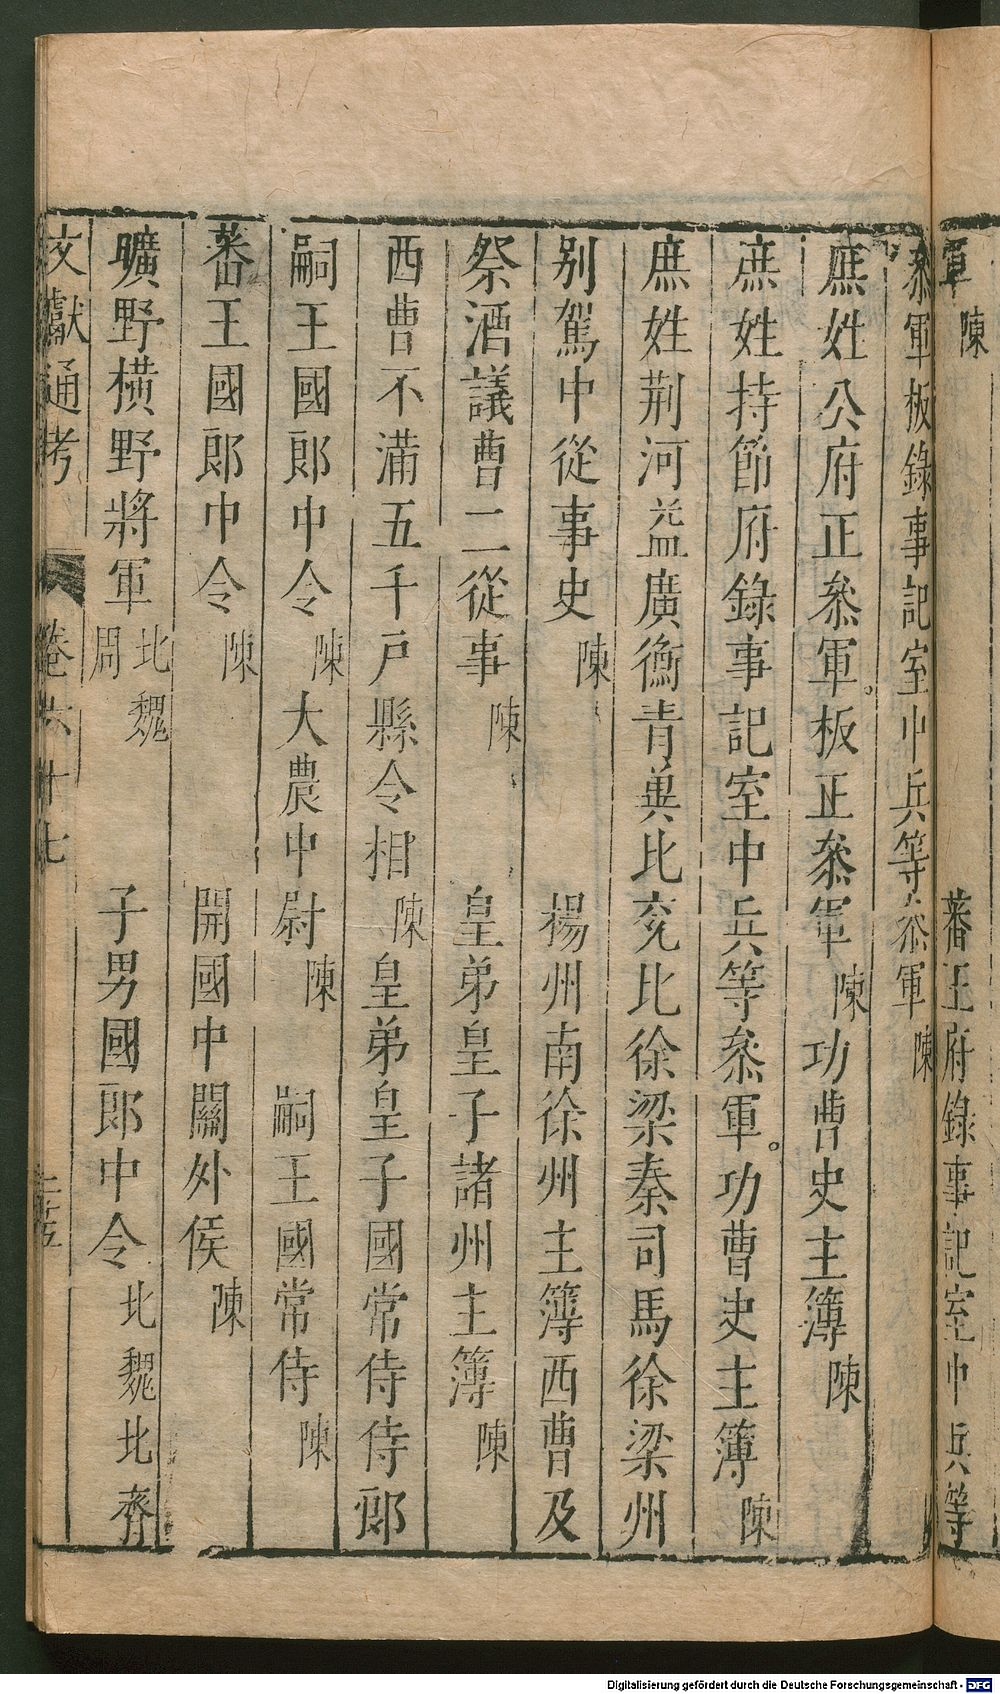 軍 陳 蕃王府錄事記室中兵等
叅軍板錄事記室中兵等叅軍 陳
庶姓公府正叅軍。板正叅軍 陳 功曹史主簿 陳
庶姓持節府錄事記室中兵等叅軍。功曹史主簿 陳
庶姓荆河益廣衡青兾比兖比徐梁秦司馬徐梁州
别駕中從事史 陳 楊州南徐州主簿西曹及
祭酒議曹二從事 陳 皇弟皇子諸州主簿 陳
西曹不滿五千戸縣令相 陳 皇弟皇子國常侍侍郎
嗣王國郎中令 陳 大農中尉 陳 嗣王國常侍 陳
蕃王國郎中令 陳 開國中關外侯 陳
曠野橫野將軍 北魏周 子男國郎中令 北魏北齊
文獻通考 卷六十七
Digitalisierung gefördert durch die Deutsche Forschungsgemeinschaft - DFG